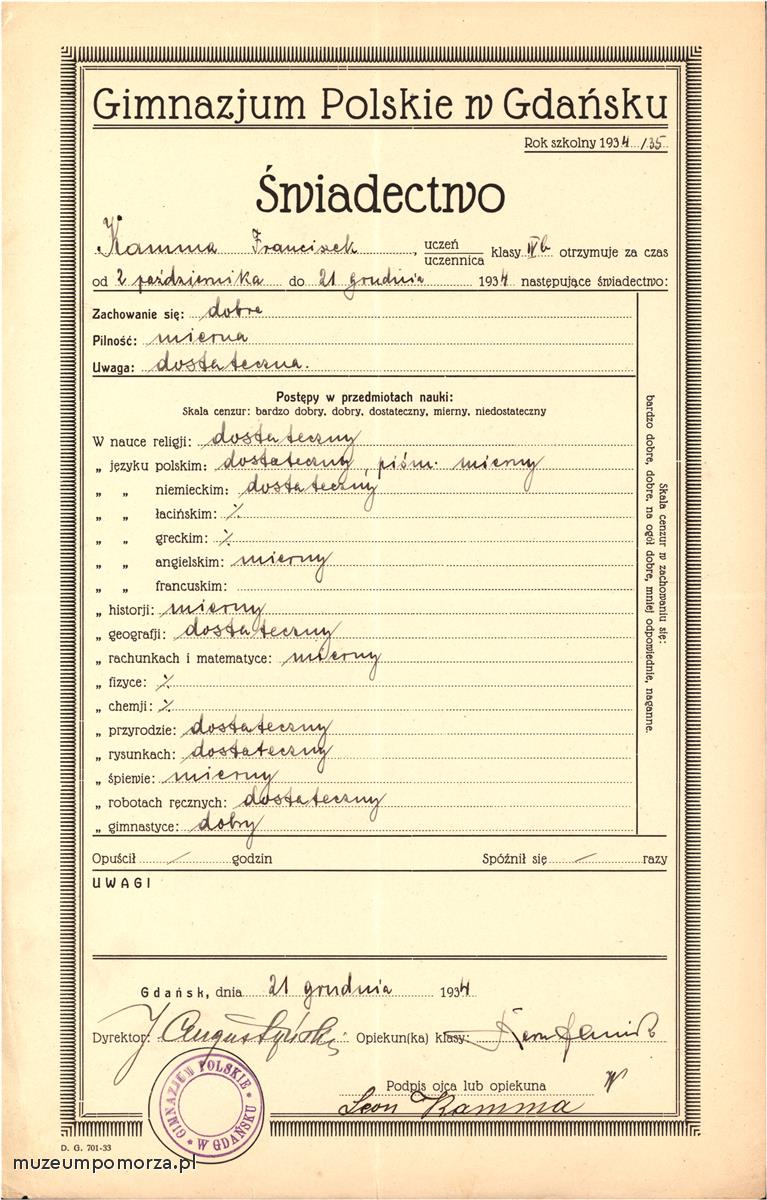 Gimnazjum Polskie w Gdańsku
Rok szkolny 1934/35
Świadectwo
Kamma Franciszek, uczeń
uczennica klasy IV b otrzymuje za czas
od 2 października do 21 grudnia 1934 następujące świadectwo:
Zachowanie się: dobre
Pilność: mierna
Uwaga: dostateczna.
Postępy w przedmiotach nauki:
Skala cenzur: bardzo dobry, dobry, dostateczny, mierny, niedostateczny
W nauce religji: dostateczny
„ języku polskim: dostateczny, piśm. mierny
„ „ niemieckim: dostateczny
„ „ łacińskim: ⁒
„ „ greckim: ⁒
„ „ angielskim: mierny
„ „ francuskim:
„ historji: mierny
„ geografji: dostateczny
„ rachunkach i matematyce: mierny
„ fizyce: ⁒
„ chemji: ⁒
„ przyrodzie: dostateczny
„ rysunkach: dostateczny
„ śpiewie: mierny
„ robotach ręcznych: dostateczny
„ gimnastyce: dobry
Skala cenzur w zachowaniu się:
bardzo dobre, dobre, na ogół dobre, mniej odpowiednie, naganne.
Opuścił — godzin Spóźnił się — razy
UWAGI
Gdańsk, dnia 21 grudnia 1934
Dyrektor: J Augustyński Opiekun(ka) klasy:
Podpis ojca lub opiekuna
Leon Kamma
GIMNAZJUM POLSKIE
* W GDAŃSKU *
D. G. 701-33
muzeumpomorza.pl